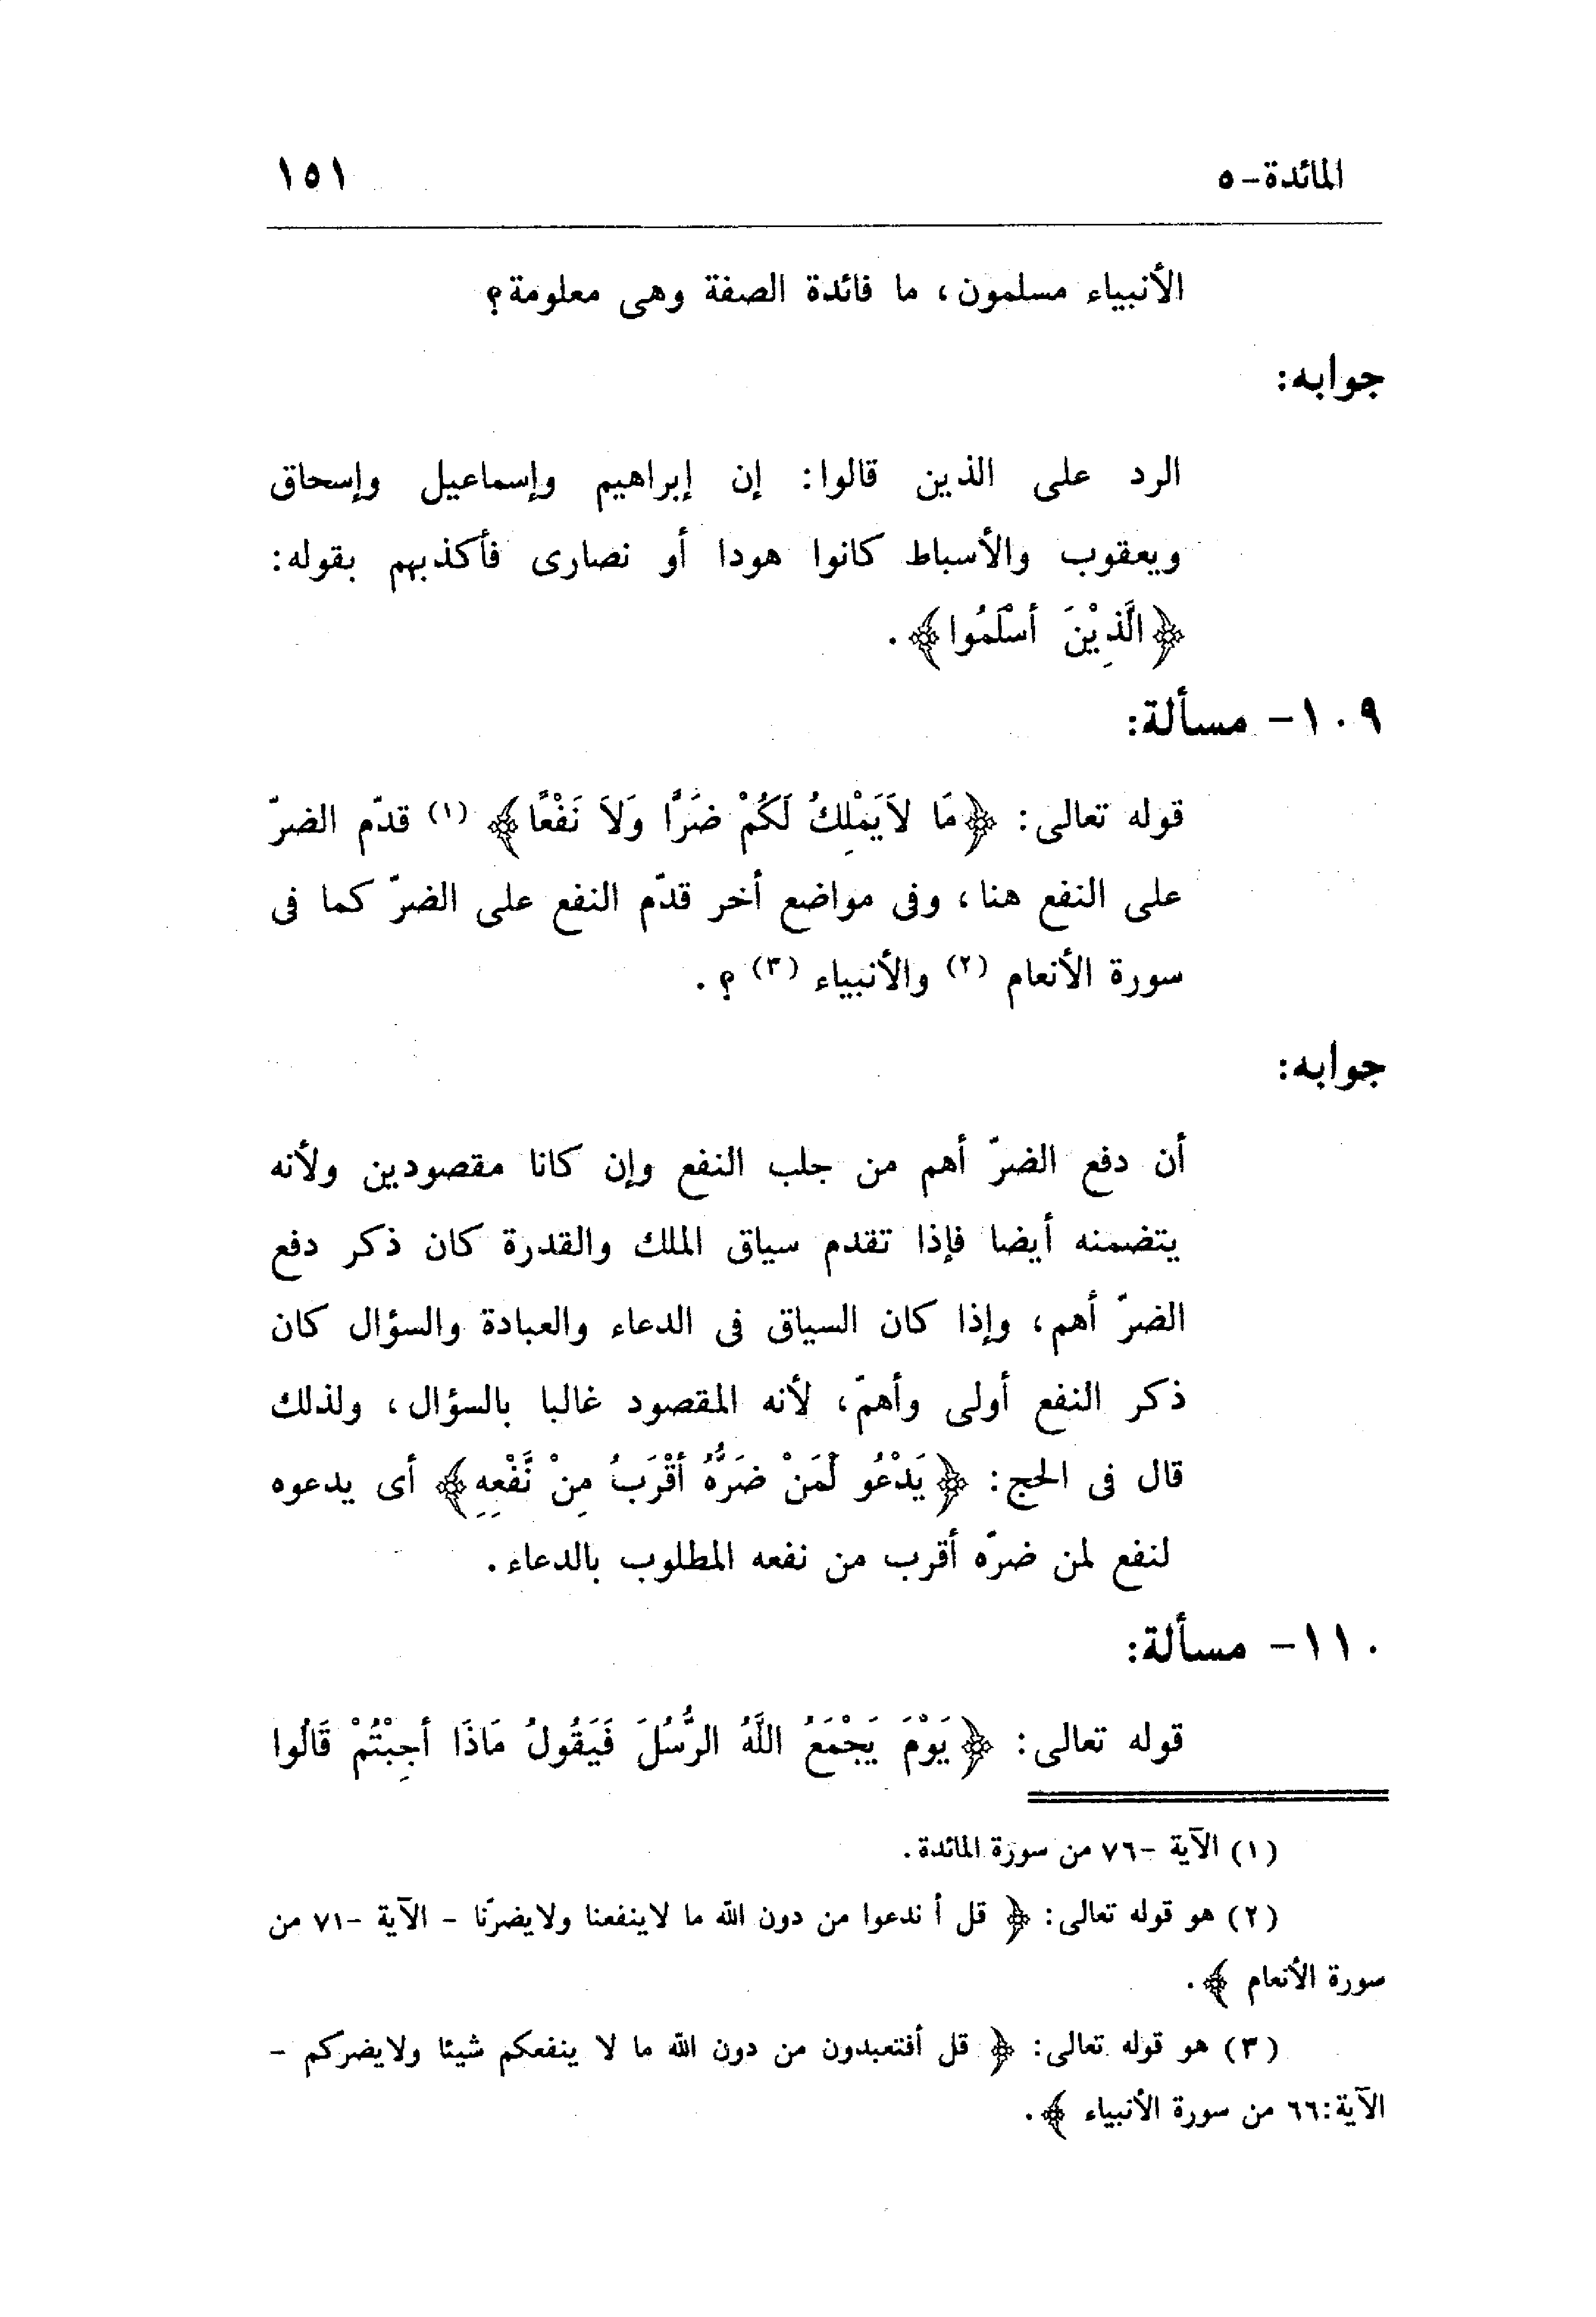 المائدة-٥ ١٥١
الأنبياء مسلمون، ما فائدة الصفة وهى معلومة؟
جوابه:
الرد على الذين قالوا: إن إبراهيم وإسماعيل وإسحاق
ويعقوب والأسباط كانوا هودا أو نصارى فأكذبهم بقوله:
﴿الَّذِيْنَ أسْلَمُوا﴾.
١٠٩- مسألة:
قوله تعالى: ﴿مَا لاَيَمْلِكُ لَكُمْ ضَرًّا وَلاَ نَفْعًا﴾ (١) قدّم الضرّ
على النفع هنا، وفى مواضع أخر قدّم النفع على الضرّ كما فى
سورة الأنعام (٢) والأنبياء (٣) ؟.
جوابه:
أن دفع الضرّ أهم من جلب النفع وإن كانا مقصودين ولأنه
يتضمنه أيضا فإذا تقدم سياق الملك والقدرة كان ذكر دفع
الضرّ أهم، وإذا كان السياق فى الدعاء والعبادة والسؤال كان
ذكر النفع أولى وأهمّ، لأنه المقصود غالبا بالسؤال، ولذلك
قال فى الحج: ﴿يَدْعُو لَمَنْ ضَرُّهُ أقْرَبُ مِنْ نَّفْعِهِ﴾ أى يدعوه
لنفع لمن ضرّه أقرب من نفعه المطلوب بالدعاء.
١١٠- مسألة:
قوله تعالى: ﴿يَوْمَ يَجْمَعُ اللَّهُ الرُّسُلَ فَيَقُولُ مَاذَا أجِبْتُمْ قَالُوا
(١) الآية -٧٦ من سورة المائدة.
(٢) هو قوله تعالى: ﴿ قل أ ندعوا من دون الله ما لاينفعنا ولايضرّنا - الآية -٧١ من
سورة الأنعام ﴾.
(٣) هو قوله تعالى: ﴿ قل أفتعبدون من دون الله ما لا ينفعكم شيئا ولايضركم -
الآية:٦٦ من سورة الأنبياء ﴾.